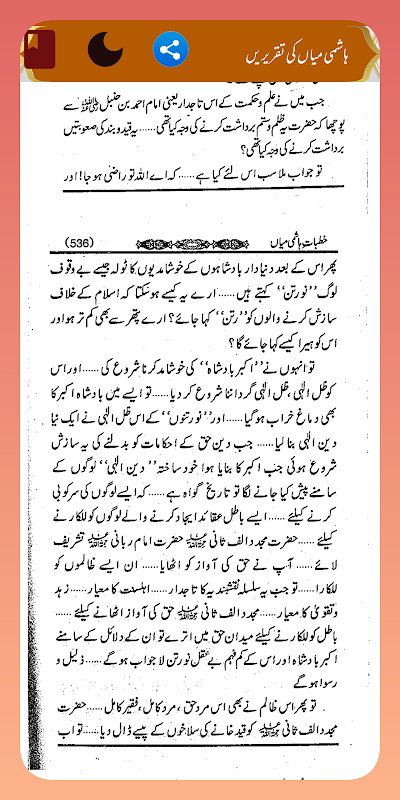 ہاشمی میاں کی تقریریں
جب میں نے علم و حکمت کے اس تاجدار یعنی امام احمد بن حنبل ﷺ سے
پوچھا کہ حضرت یہ ظلم و ستم برداشت کرنے کی وجہ کیا تھی...... یہ قید و بند کی صعوبتیں
برداشت کرنے کی وجہ کیا تھی؟
تو جواب ملا سب اس لئے کیا ہے...... کہ اے اللہ تو راضی ہو جا! اور
خطبات ہاشمی میاں (536)
پھر اس کے بعد دنیا دار بادشاہوں کے خوشامدیوں کا ٹولہ جیسے بے وقوف
لوگ ’’نورتن‘‘ کہتے ہیں...... ارے یہ کیسے ہو سکتا کہ اسلام کے خلاف
سازش کرنے والوں کو ’’رتن‘‘ کہا جائے؟ ارے پتھر سے بھی کم تر ہو اور
اس کو ہیرا کیسے کہا جائے گا؟
تو انہوں نے ’’اکبر بادشاہ‘‘ کی خوشامد کرنا شروع کی...... اور اس
کو ظل الٰہی، ظل الٰہی گرداننا شروع کر دیا...... تو ایسے میں بادشاہ اکبر کا
بھی دماغ خراب ہو گیا...... اور ’’نورتنوں‘‘ کے اس ظل الٰہی نے ایک نیا
دین الٰہی بنا لیا...... جب دین حق کے احکامات کو بدلنے کی یہ سازش
شروع ہوئی جب اکبر کا بنایا ہوا خود ساختہ ’’دین الٰہی‘‘ لوگوں کے
سامنے پیش کیا جانے لگا تو تاریخ گواہ ہے...... کہ ایسے لوگوں کی سرکوبی
کرنے کیلئے...... ایسے باطل عقائد ایجاد کرنے والے لوگوں کو للکارنے
کیلئے...... حضرت مجدد الف ثانی ﷺ حضرت امام ربانی ﷺ تشریف
لائے...... آپ نے حق کی آواز کو اٹھایا...... ان ایسے ظالموں کو
للکارا...... تو جب یہ سلسلہ نقشبندیہ کا تاجدار...... اہلسنت کا معیار...... زہد
و تقویٰ کا معیار...... مجدد الف ثانی ﷺ حق کی آواز اٹھانے کیلئے......
باطل کو للکارنے کیلئے میدان حق میں اترے تو ان کے دلائل کے سامنے
اکبر بادشاہ اور اس کے کم فہم بے عقل نورتن لا جواب ہو گے...... ذلیل و
رسوا ہو گے
تو پھر اس ظالم نے بھی اس مرد حق، مرد کامل، فقیر کامل...... حضرت
مجدد الف ثانی ﷺ کو قید خانے کی سلاخوں کے پیچھے ڈال دیا...... تو اب